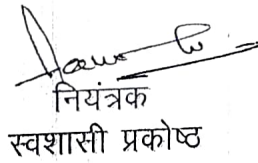 नियंत्रक
स्वशासी प्रकोष्ठ